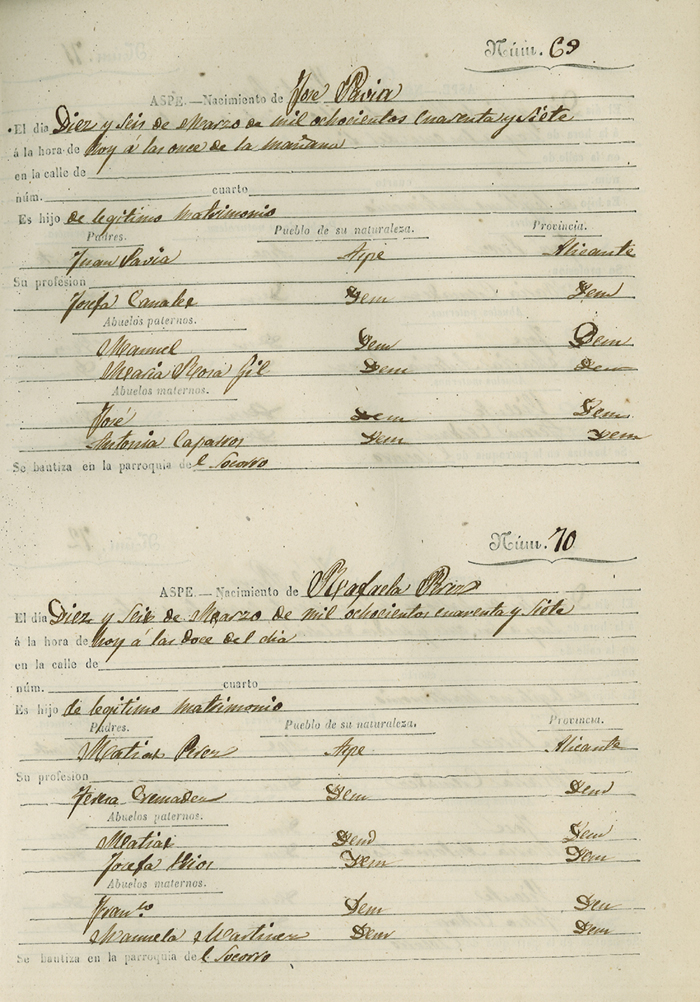 Núm. 69
ASPE.—Nacimiento de José Pavia
El dia Diez y Seis de Marzo de mil ochocientos cuarenta y siete
á la hora de hoy á las once de la mañana
en la calle de
núm. cuarto
Es hijo de legitimo matrimonio
Padres. Pueblo de su naturaleza. Provincia.
Juan Pavia Aspe Alicante
Su profesion
Josefa Canales Idem Idem
Abuelos paternos.
Manuel Idem Idem
Maria Rosa Gil Idem Idem
Abuelos maternos.
José Idem Idem
Antonia Idem Idem
Se bautiza en la parroquia del Socorro
Núm. 70
ASPE.—Nacimiento de Rafaela Perez
El dia Diez y Seis de Marzo de mil ochocientos cuarenta y siete
á la hora de hoy á las doce del dia
en la calle de
núm. cuarto
Es hijo de legitimo matrimonio
Padres. Pueblo de su naturaleza. Provincia.
Matias Perez Aspe Alicante
Su profesion
Teresa Cremades Idem Idem
Abuelos paternos.
Matias Idem Idem
Josefa Rios Idem Idem
Abuelos maternos.
Fran.co Idem Idem
Manuela Martinez Idem Idem
Se bautiza en la parroquia del Socorro